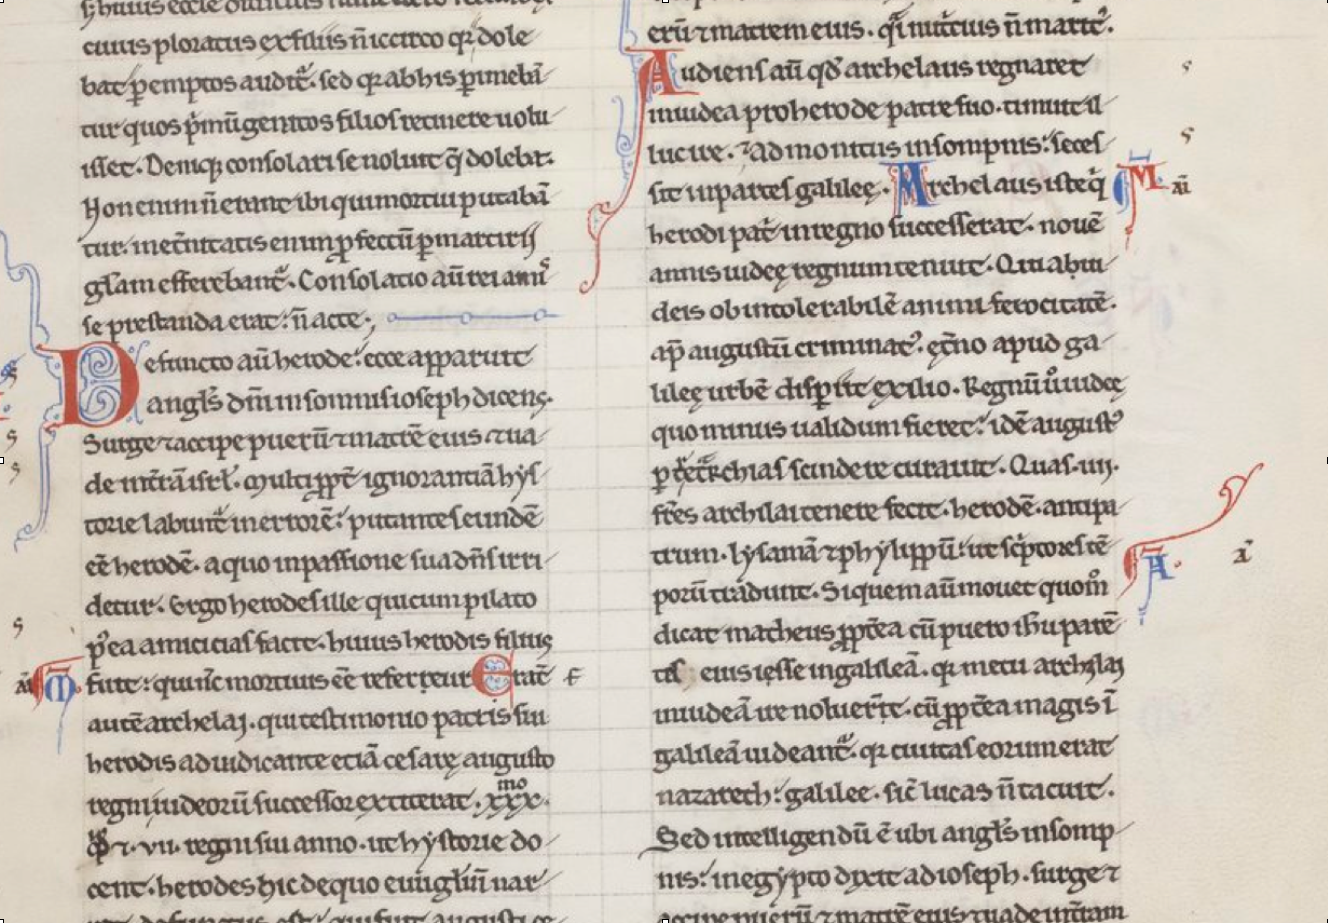 cuius ploratus exfilius n̄ iccirco qꝛ dole
bat p̱emptos audit᷑. sed qꝛ abhis ꝑimebā
tur quos p̱mū genitos filios retinere uolu
isset. Deniqꝫ consolari se noluit q̄ dolebat.
Non enim n̄ erant ibi qui mortui putabā
tur. in et̄nitatis enim ꝓfectū ꝑ martirii
gl̄am efferebant᷑. Consolatio aū rei amis
se prestanda erat: n̄ aucte;
Defuncto aū herode: ecce apparuit
angl̄s dn̄i in somnis ioseph dicens.
Surge ⁊ accipe puerū ⁊ matrē eius ⁊ ua
de in t̄rā isrl̄. Multi ꝓpt̄ ignorantiā hys
torie labunt᷑ in errorē: putantes eundē
eē herodē. a quo in passione sua dn̄s irri
detur. Ergo herodes ille qui cum pilato
p᷒ea amicicias facit. huius herodis filius
fuit: qui nc̄ mortuus eē refertur Erat̄
autē archelaj. qui testimonio patris sui
herodis adiudicante etiā cesare augusto
regni iudeorū successor extiterat. xxx.mo
⁊. vii. regni sui anno. ut hystorie do
cent. herodes hic de quo euu̅gl̄iū nar
erū ⁊ matrem eius. qi nūtius n̄ matit᷒.
Audiens aū qd̄ archelaus regnaret
in iudea pro herode patre suo. timuit il
luc ire. ⁊ admonitus in sompnis: seces
sit in partes galilęę. Archelaus iste q̇
herodi pat̄ in regno successerat. nouē
annis iudeę regnum tenuit. Qui a iu
deis ob intolerabilē animi ferocitatē.
ap̄ augustū criminat᷒. apud ga
lileę urbē disperiit exilio. Regnū u̇ iudeę
quo minus ualidum fieret: idē august᷒
ꝑ tetrarchias scindere curauit. Quas .iiii.
fr̄es archilai tenere fecit. herodē. antipa
trum. lysaniā ⁊ phylippū: ut sc̄ptores tē
porū tradunt. Siquem aū mouet quom̊
dicat matheus ꝓpt̄ea cū puero ih̄u parē
tes eius iesse in galileā. qꝛ metu archelaj
in iudeā ire noluer̄t. cū ꝓpt̄ea magis ī
galileā uideant᷑. qꝛ ciuitas eorum erat
nazareth: galilee. sic̄ lucas n̄ tacuit.
Sed intelligendū ē ubi angl̄s in somp
nis: in egypto dixit ad ioseph. surge ⁊
accipe puerū ⁊ matrē eius ⁊ uade in t̄ram